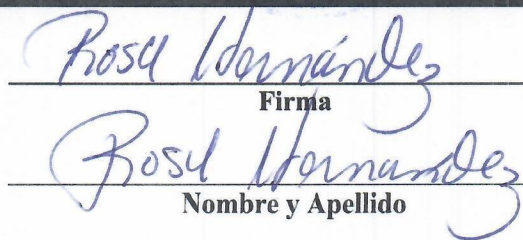 Rosa Hernández
Firma
Rosa Hernandez
Nombre y Apellido